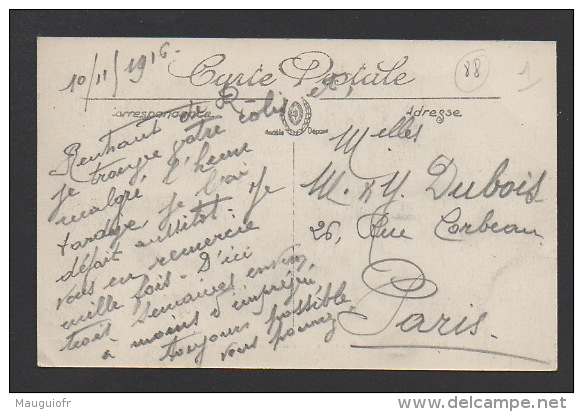 10/11/1916.
Carte Postale
88
1
Correspondance
Adresse
Modèle Déposé
Rentrant de
je trouve votre colis et,
malgré l'heure
tardive, je l'ai
défait aussitôt. Je
vous en remercie
mille fois. D'ici
trois semaines environ
à moins d'imprévu,
toujours possible
vous pouvez
Melles
M. & Y. Dubois
26, Rue Corbeau
Paris.
Mauguiofr
delcampe.net